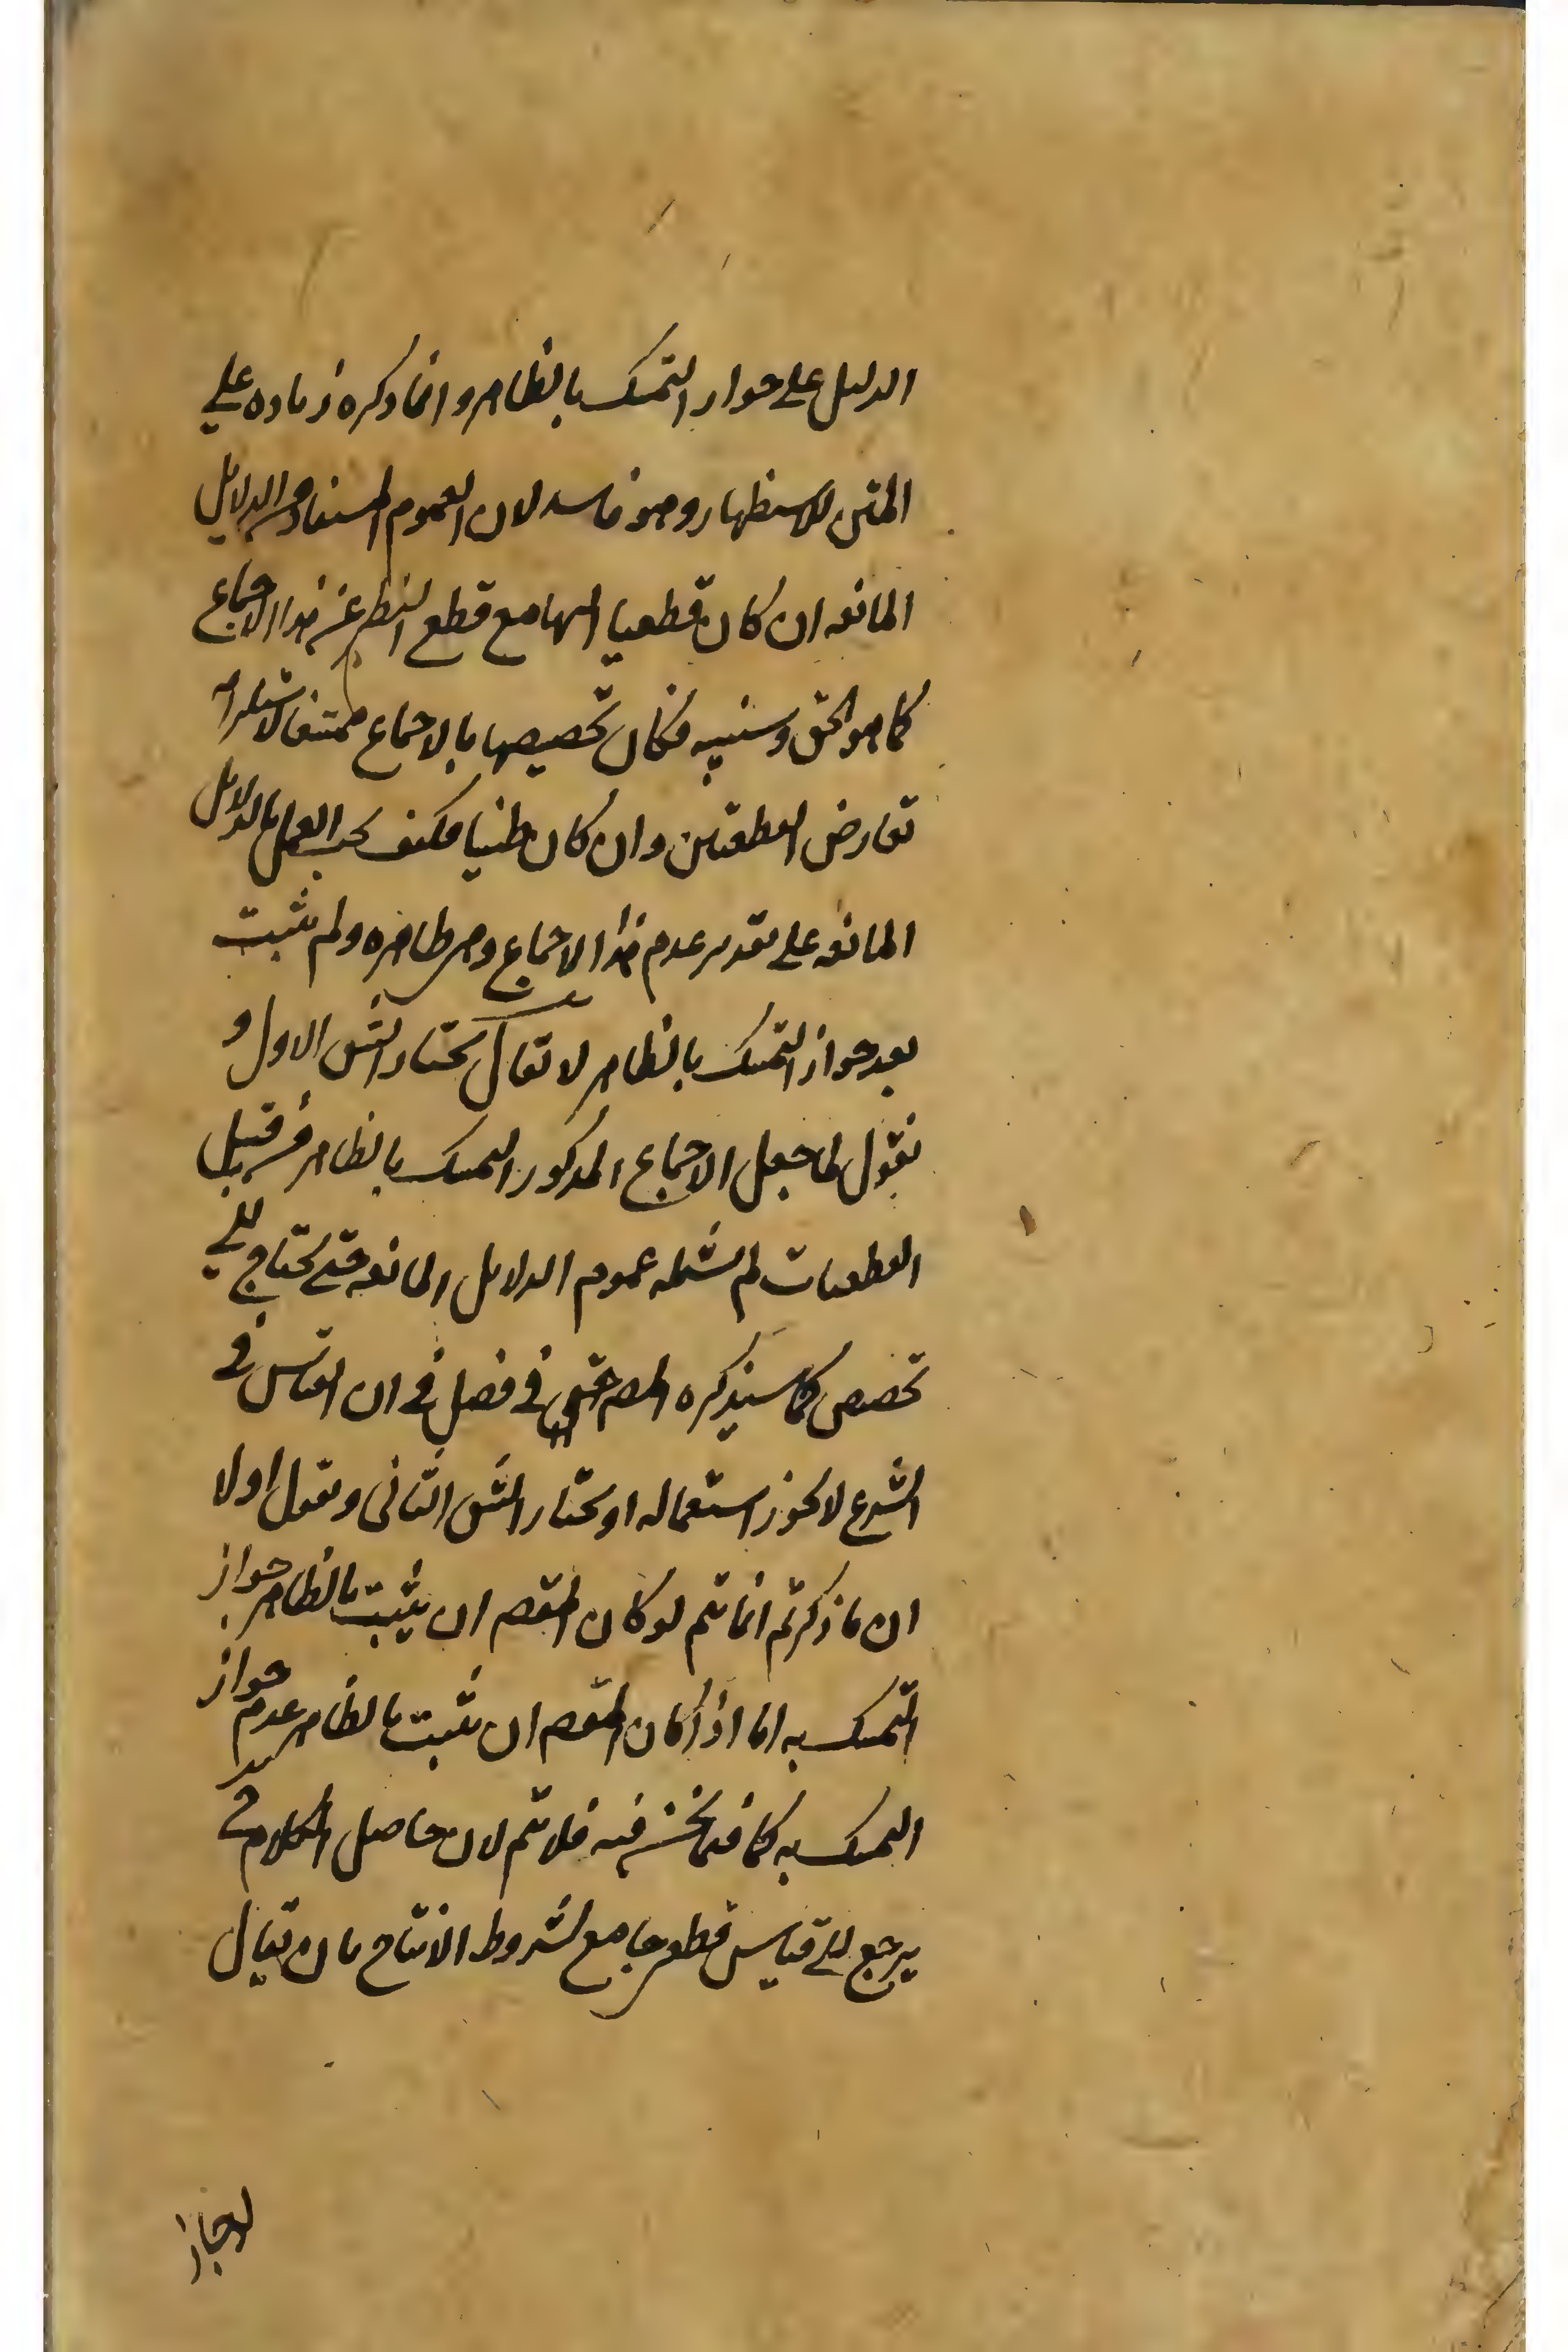 الدليل على جواز التمسك بالظاهر وانما ذكره زيادة على
المتن للاستظهار وهو فاسد لان العموم المستفاد من الدلايل
المانعه ان كان قطعيا مع قطع النظر عن هذا الاجماع
كما هو الحق وسنبينه فكان تخصيصها بالاجماع ممتنعا لاستلزامه
تعارض القطعيين وان كان ظنيا فكيف يجب العمل بالدلايل
المانعه على تقدير عدم هذا الاجماع وهي ظاهره ولم يثبت
بعد جواز التمسك بالظاهر لا يقال نختار الشق الاول و
نقول لما جعل الاجماع المذكور التمسك بالظاهر من قبيل
القطعيات لم يشمله عموم الدلايل المانعه حتى يحتاج الى
تخصيص كما سيذكره المصـ في فصل في ان القياس في
الشرع لا يجوز استعماله او نختار الشق الثاني ونقول اولا
ان ما ذكرتم انما يتم لو كان المقصـ ان يثبت بالظاهر جواز
التمسك به اما اذا كان المقصـ ان يثبت بالظاهر عدم جواز
التمسك به كما فيما نحن فيه فلا يتم لان حاصل الكلام ح
يرجع الى قياس قطعي جامع لشروط الانتاج بان يقال
لو جاز